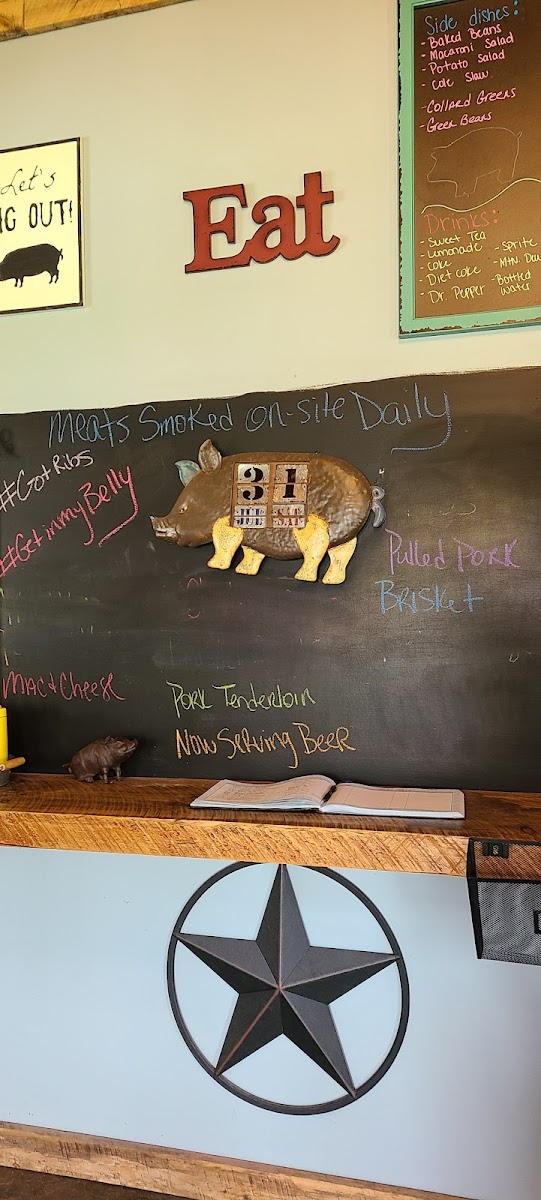 Let's
IG OUT!
Eat
Side dishes:
- Baked Beans
- Macaroni Salad
- Potato Salad
- Cole Slaw
- Collard Greens
- Green Beans
Drinks:
- Sweet Tea
- Lemonade
- Coke
- Diet Coke
- Dr. Pepper
- Sprite
- Mtn. Dew
- Bottled
Water
Meats Smoked on-site Daily
#Got Ribs
#Get in my Belly
31
SAT
Pulled Pork
Brisket
Mac & Cheese
Pork Tenderloin
Now Serving Beer